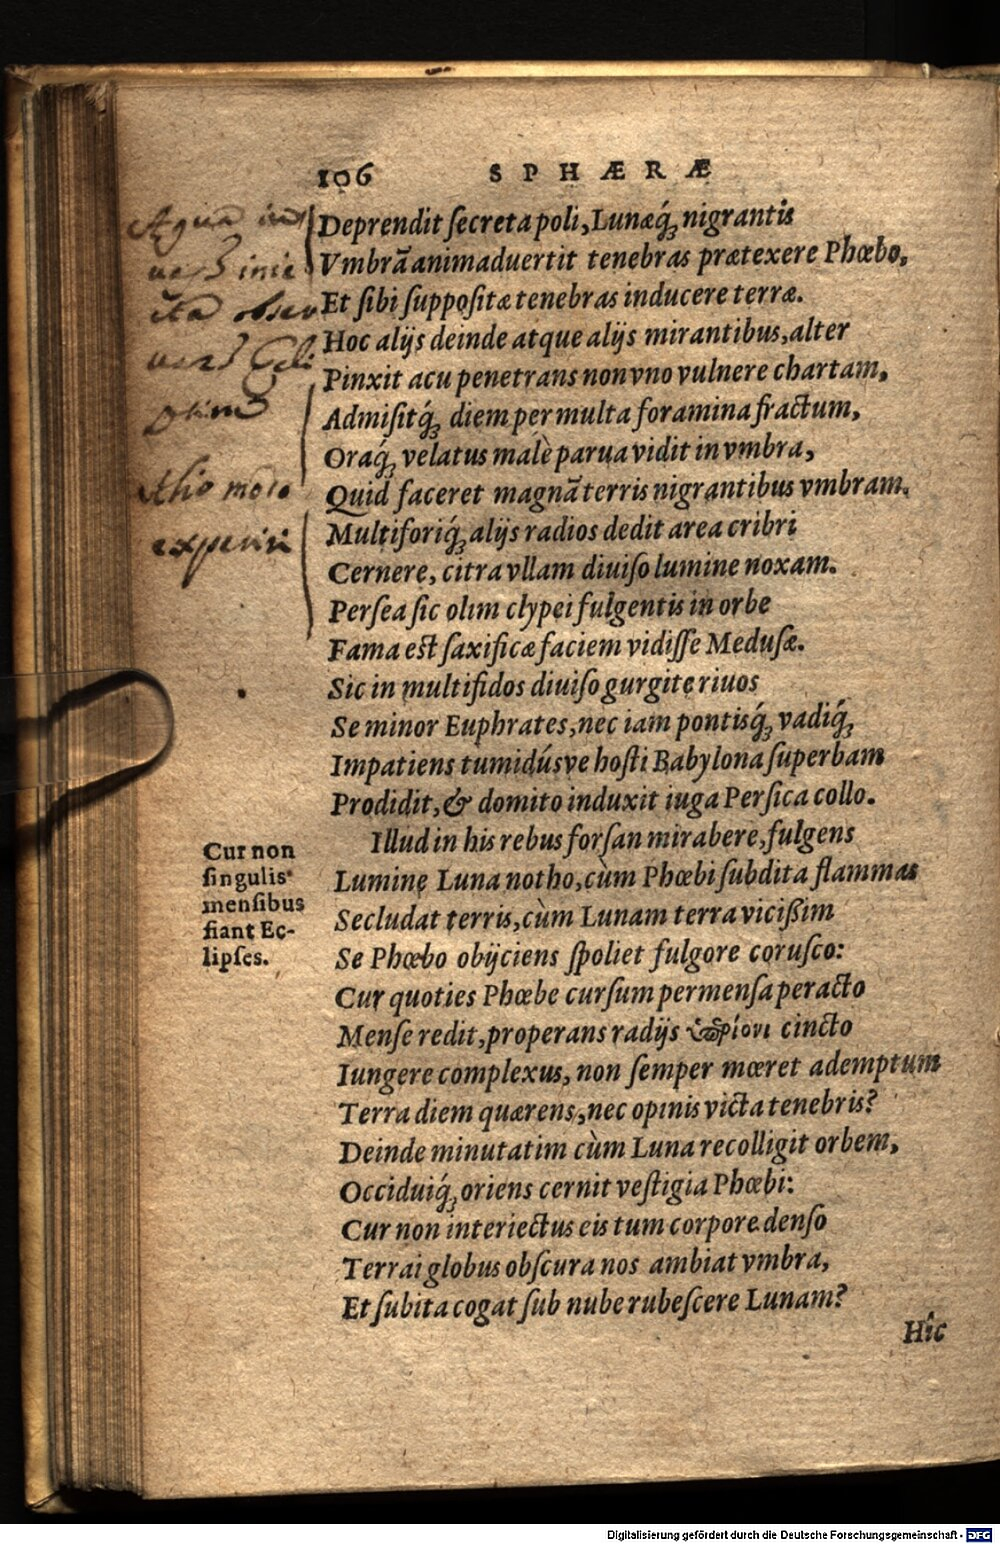 106 SPHÆRÆ
Deprendit ſecreta poli, Lunæq́; nigrantis
Vmbrā animaduertit tenebras prætexere Phœbo,
Et ſibi ſuppoſitæ tenebras inducere terræ.
Hoc alijs deinde atque alijs mirantibus, alter
Pinxit acu penetrans non vno vulnere chartam,
Admiſitq́; diem per multa foramina fractum,
Oraq́; velatus malè parua vidit in vmbra,
Quid faceret magnā terris nigrantibus vmbram.
Multiforiq́; alijs radios dedit area cribri
Cernere, citra vllam diuiſo lumine noxam.
Perſea ſic olim clypei fulgentis in orbe
Fama eſt ſaxificæ faciem vidiſſe Meduſæ.
Sic in multifidos diuiſo gurgite riuos
Se minor Euphrates, nec iam pontisq́; vadiq́;
Impatiens tumidúsve hoſti Babylona ſuperbam
Prodidit, & domito induxit iuga Perſica collo.
Illud in his rebus forſan mirabere, fulgens
Lumine Luna notho, cùm Phœbi ſubdita flammas
Secludat terris, cùm Lunam terra vicißim
Se Phœbo obijciens ſpoliet fulgore coruſco:
Cur quoties Phœbe curſum permenſa peracto
Menſe redit, properans radijs cincto
Iungere complexus, non ſemper mœret ademptum
Terra diem quærens, nec opinis victa tenebris?
Deinde minutatim cùm Luna recolligit orbem,
Occiduiq́; oriens cernit veſtigia Phœbi:
Cur non interiectus eis tum corpore denſo
Terrai globus obſcura nos ambiat vmbra,
Et ſubita cogat ſub nube rubeſcere Lunam?
Hîc
Cur non
ſingulis
menſibus
fiant Ec-
lipſes.
olim
Alio modo
experiri
Digitalisierung gefördert durch die Deutsche Forschungsgemeinschaft - DFG